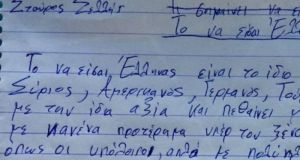 Σταύρος Ζελλής
Τι σημαίνει να ε
Το να είσαι Ελ
Το να είσαι Έλληνας είναι το ίδιο
Σύριος, Αμερικανός, Γερμανός, Τού
με την ίδια αξία και πεθαίνει
με κανένα προτέρημα υπέρ του ξένο
όπως οι υπόλοιποι, απλά με